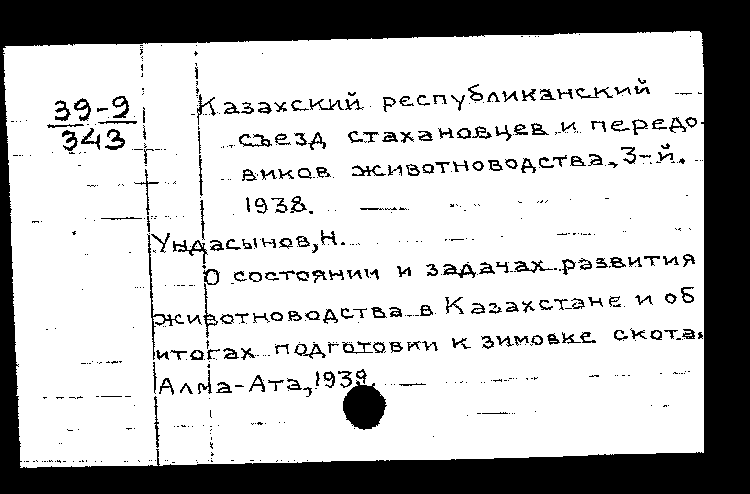 39-9
343
Казахский республиканский
съезд стахановцев и передо-
виков животноводства, 3-й.
1938.
Ундасынов, Н.
О состоянии и задачах развития
животноводства в Казахстане и об
итогах подготовки к зимовке скота.
Алма-Ата, 1939.